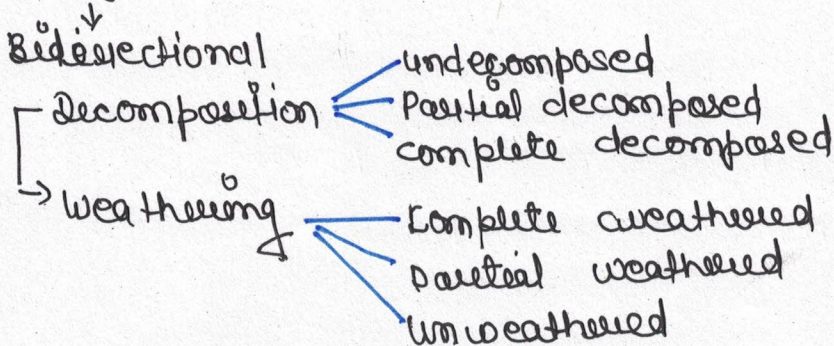 Bidirectional
Decomposition
undecomposed
Partial decomposed
complete decomposed
Weathering
Complete weathered
Partial weathered
Unweathered